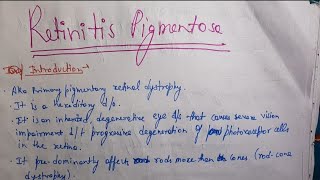 Retinitis Pigmentosa
Introduction
• Aka Primary pigmentary retinal dystrophy.
• It is a hereditary d/o.
• It is an inherited, degenerative eye d/o that causes severe vision
impairment d/t progressive degeneration of photoreceptor cells
in the retina.
• It pre-dominantly affects rods more than cones (rod-cone
dystrophy).